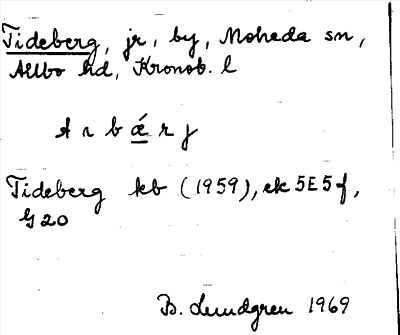 Tideberg, jr, by, Moheda sn,
Allbo hd, Kronob. l
A r b ǽ r j
Tideberg kb (1959), ek 5E5f,
G20
B. Lundgren 1969